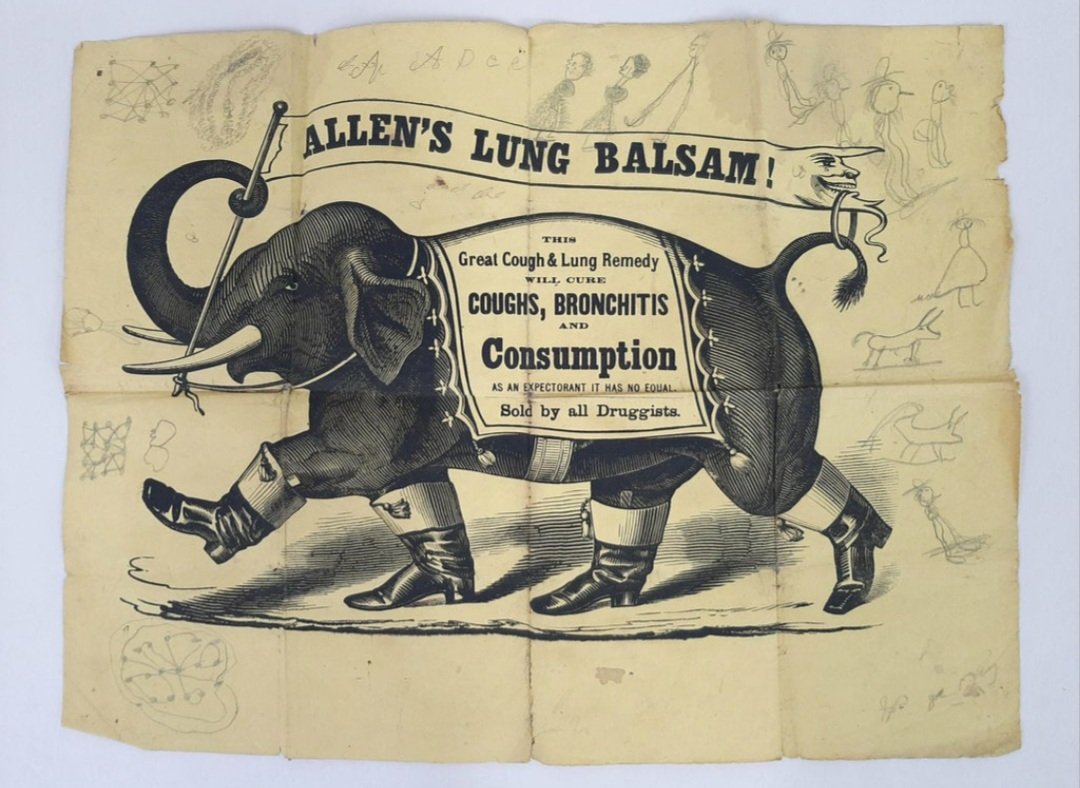 ALLEN'S LUNG BALSAM!
THIS
Great Cough & Lung Remedy
WILL CURE
COUGHS, BRONCHITIS
AND
Consumption
AS AN EXPECTORANT IT HAS NO EQUAL.
Sold by all Druggists.